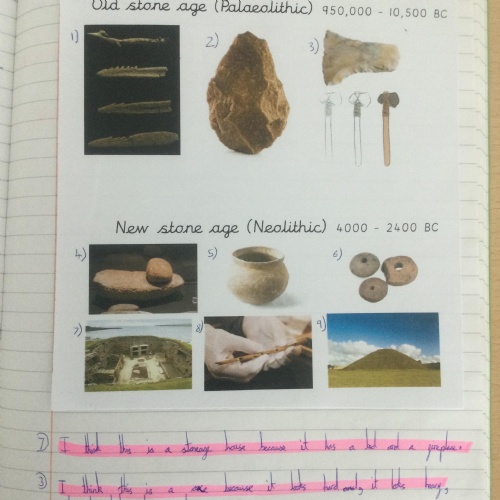 Old stone age (Palaeolithic) 950,000 - 10,500 BC
1) 2) 3)
New stone age (Neolithic) 4000 - 2400 BC
4) 5) 6)
7) 8) 9)
7) I think this is a house because it has a bed and a fireplace.
3) I think this is a axe because it lots hard and, it lots heavy,